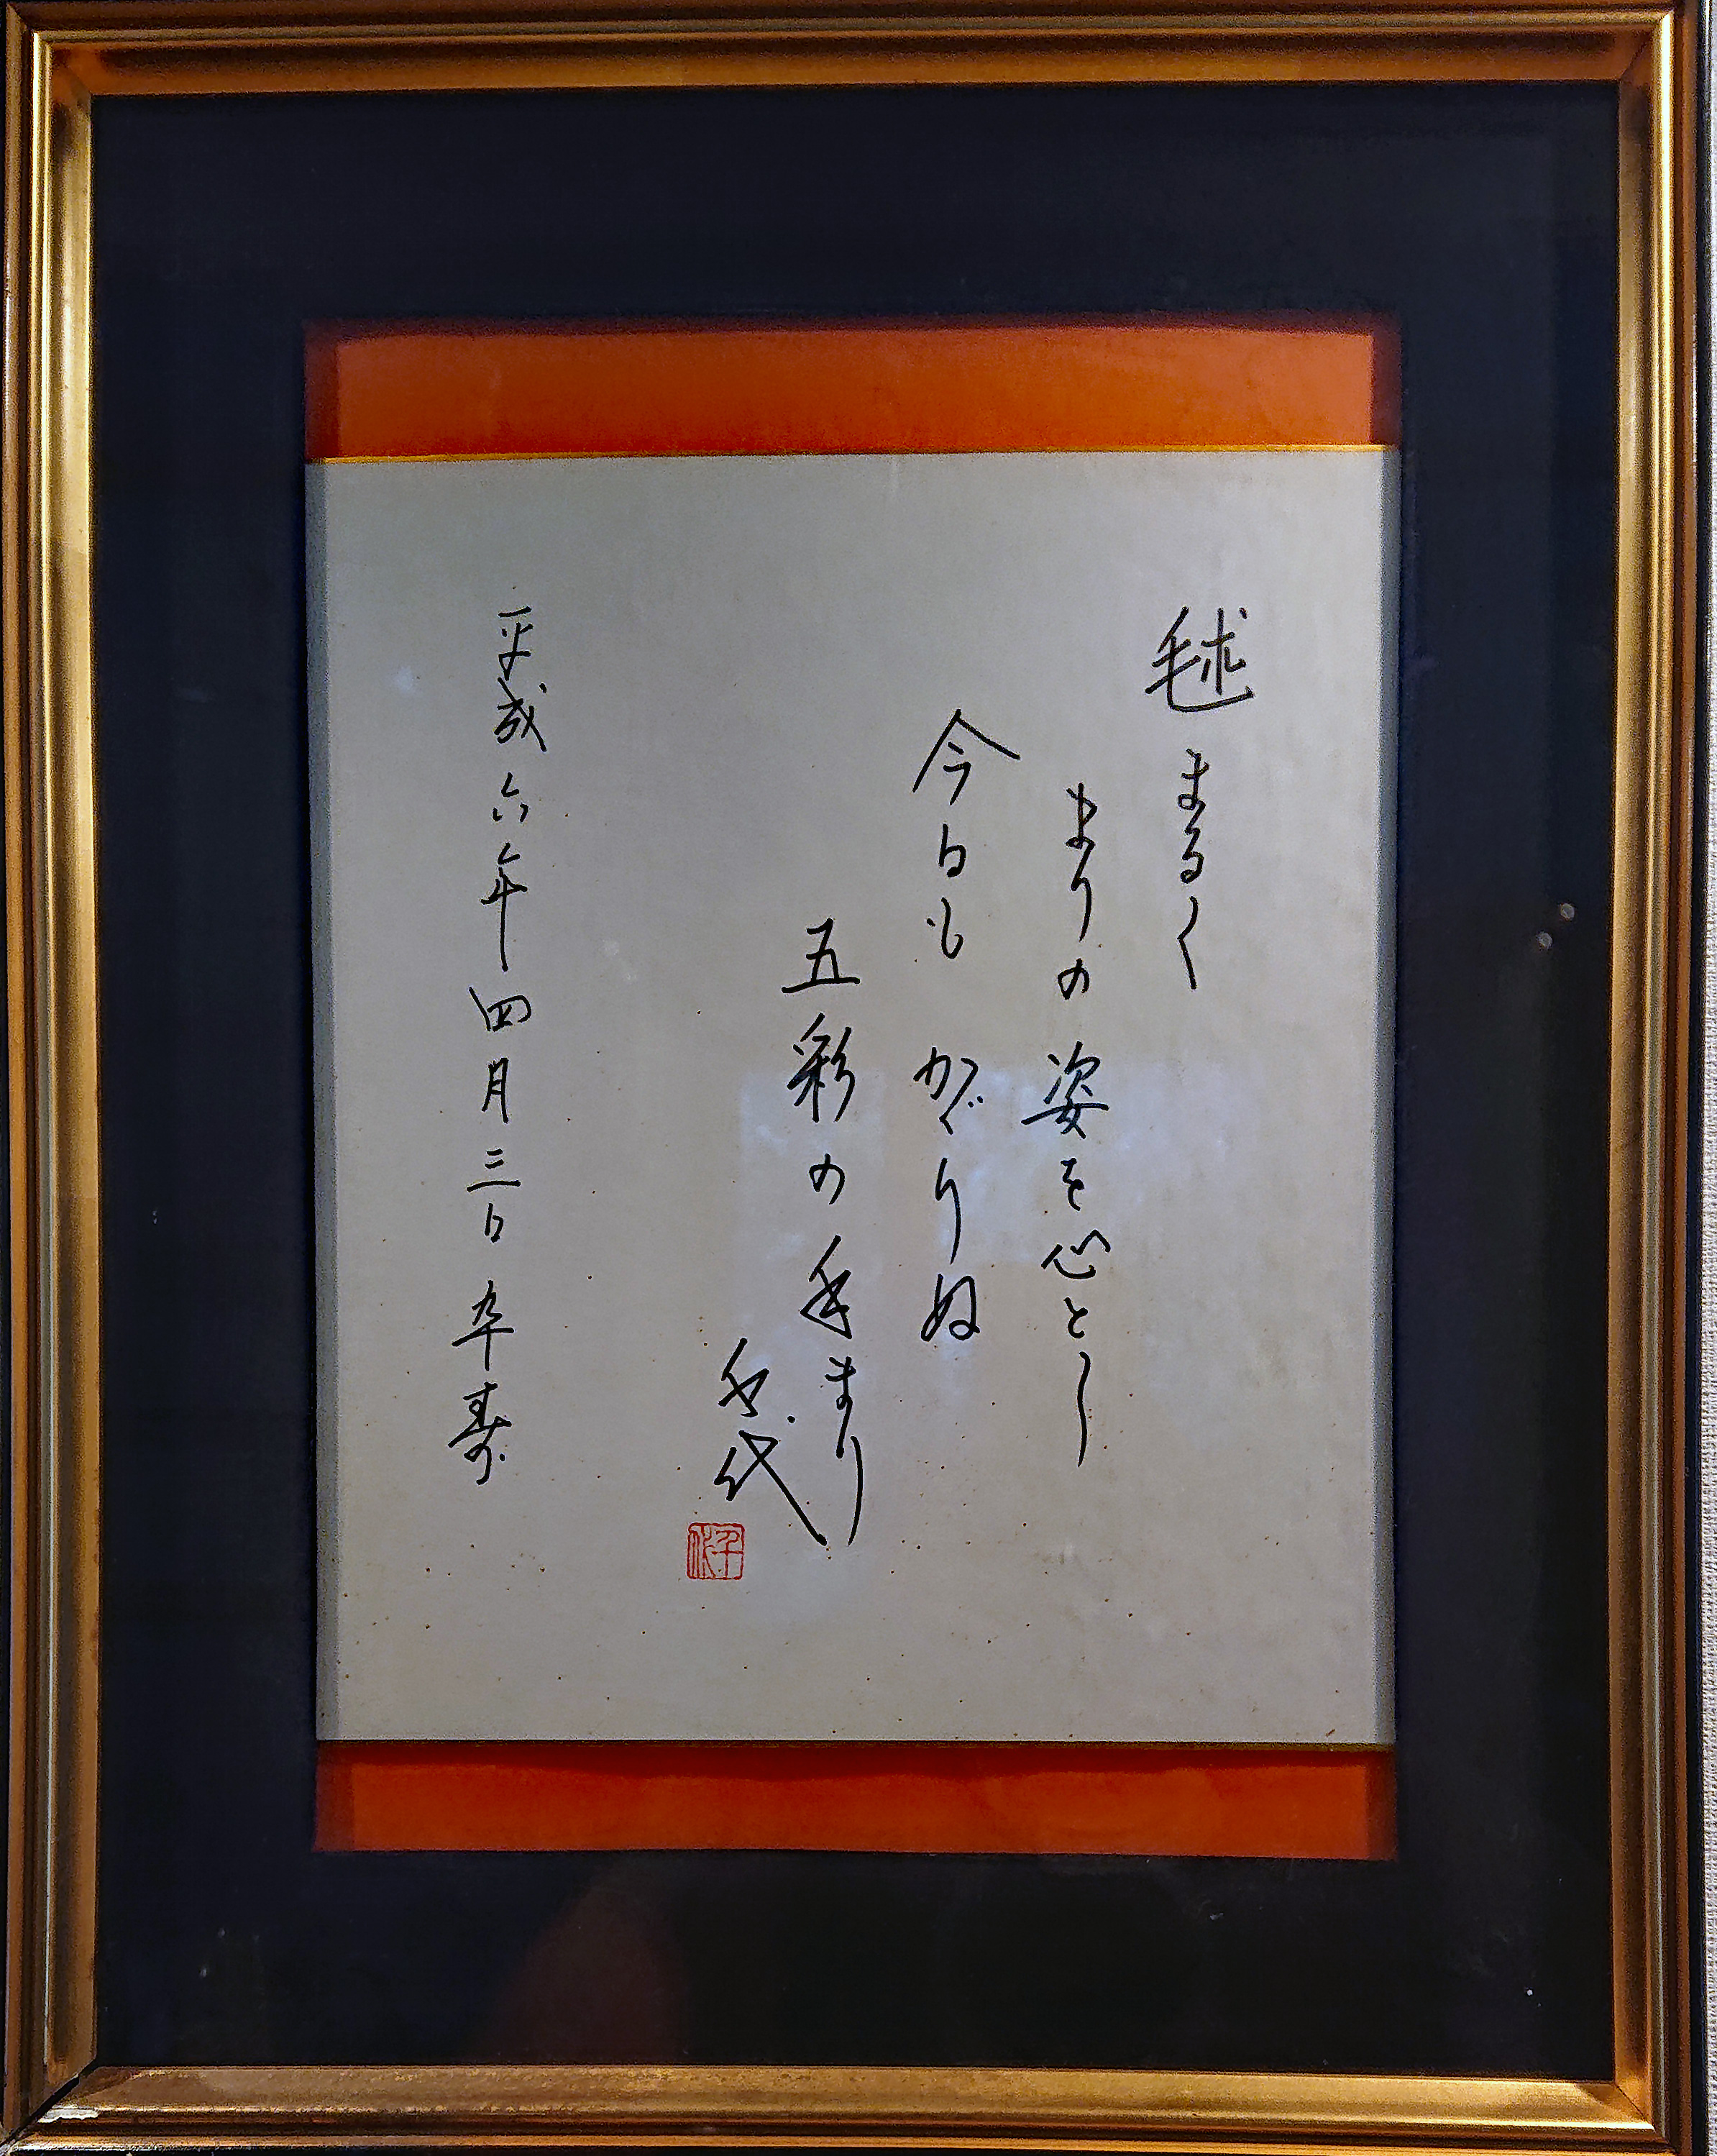 毬まるく
まりの姿を心とし
今日もかゞりぬ
五彩の手まり
千代
平成六年四月三日 卒寿
千代